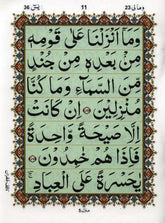 يٰسٓ 36
11
وما لی 23
وَمَآ اَنْزَلْنَا عَلٰى قَوْمِهٖ
مِنْۢ بَعْدِهٖ مِنْ جُنْدٍ
مِّنَ السَّمَآءِ وَمَا كُنَّا
مُنْزِلِيْنَ ۝ اِنْ كَانَتْ
اِلَّا صَيْحَةً وَّاحِدَةً
فَاِذَا هُمْ خٰمِدُوْنَ ۝
يٰحَسْرَةً عَلَى الْعِبَادِ